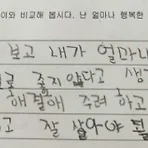 이와 비교해 봅시다. 난 얼마나 행복한
보고 내가 얼마나
좋지 않다고 생
해결해 주려 하고
고 잘 살아야 될